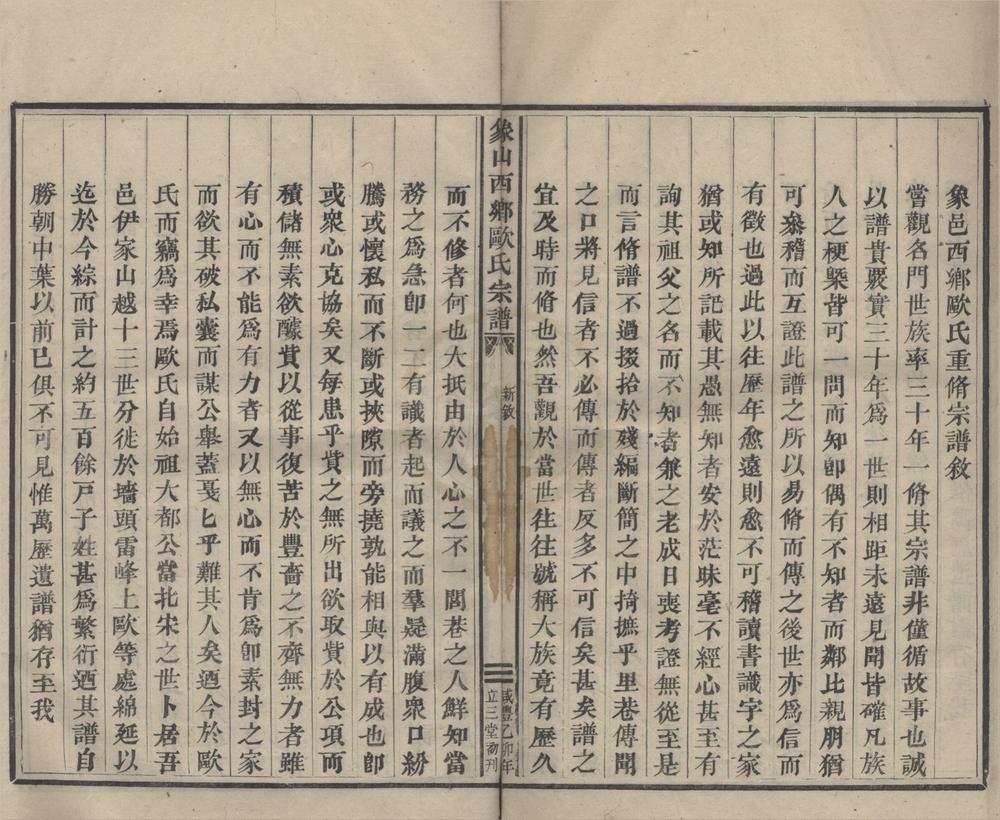 象邑西鄉歐氏重脩宗譜敘
嘗觀名門世族率三十年一脩其宗譜非僅循故事也誠
以譜貴覈實三十年爲一世則相距未遠見聞皆確凡族
人之梗槩皆可一問而知卽偶有不知者而鄰比親朋猶
可叅稽而互證此譜之所以易脩而傳之後世亦爲信而
有徵也過此以往歷年愈遠則愈不可稽讀書識字之家
猶或知所記載其愚無知者安於茫昧毫不經心甚至有
詢其祖父之名而不知者兼之老成日喪考證無從至是
而言脩譜不過掇拾於殘編斷簡之中掎摭乎里巷傳聞
之口將見信者不必傳而傳者反多不可信矣甚矣譜之
宜及時而脩也然吾觀於當世往往號稱大族竟有歷久
象山西鄉歐氏宗譜
新敘
咸豐乙卯年
立三堂刊
而不修者何也大抵由於人心之不一閭巷之人鮮知當
務之爲急卽一二有識者起而議之而羣疑滿腹衆口紛
騰或懷私而不斷或挾隙而旁撓孰能相與以有成也卽
或衆心克協矣又每患乎貲之無所出欲取貲於公項而
積儲無素欲醵貲以從事復苦於豐嗇之不齊無力者雖
有心而不能爲有力者又以無心而不肯爲卽素封之家
而欲其破私囊而謀公舉蓋戛乜乎難其人矣迺今於歐
氏而竊爲幸焉歐氏自始祖大都公當北宋之世卜居吾
邑伊家山越十三世分徙於墻頭雷峰上歐等處綿延以
迄於今綜而計之約五百餘戸子姓甚爲繁衍迺其譜自
勝朝中葉以前已俱不可見惟萬歷遺譜猶存至我